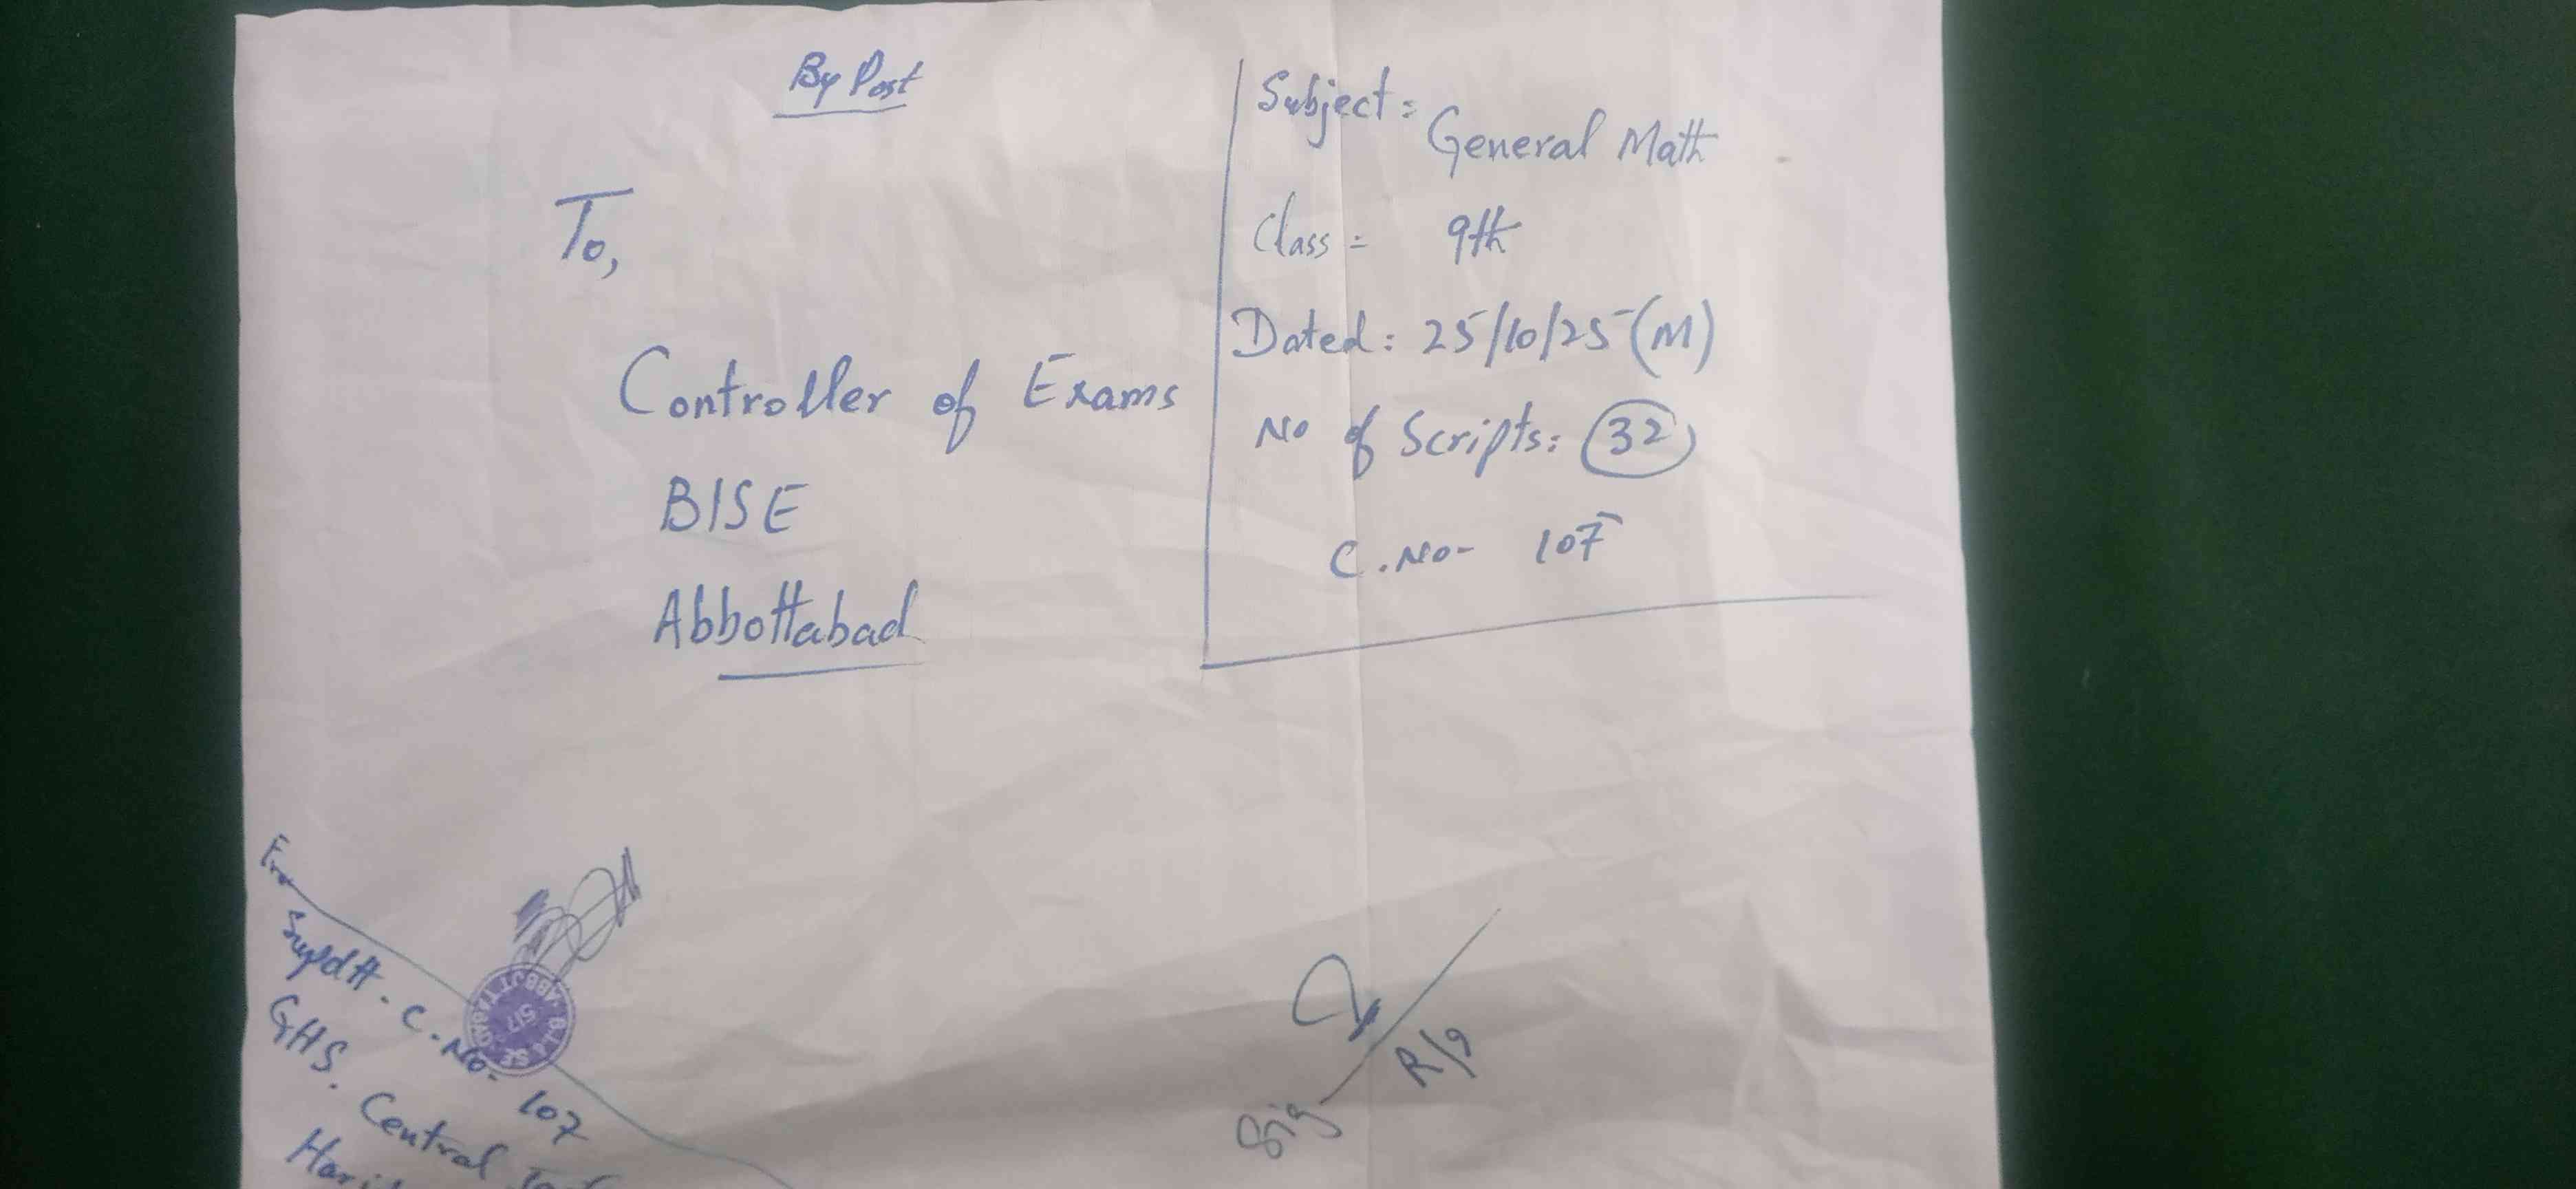 By Post
To,
Controller of Exams
BISE
Abbottabad
Subject:
General Math
Class = 9th
Dated: 25/10/25 (M)
No of Scripts: 32
C.No- 107
From
Supdtt. C.No- 107
GHS. Central
B.I.& SE ABBOTTABAD
517
Sig
R/9